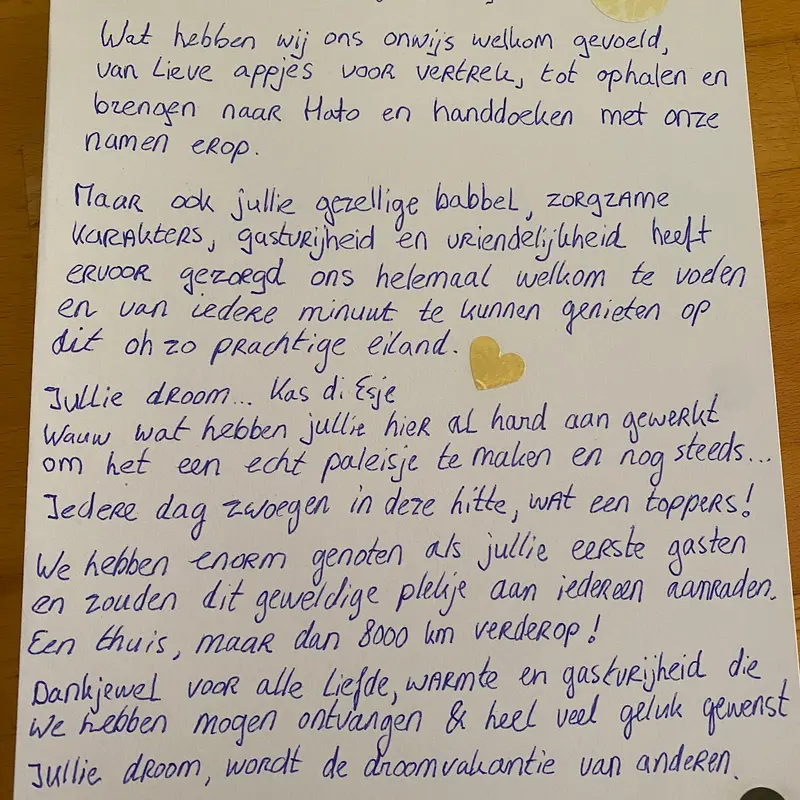 Wat hebben wij ons onwijs welkom gevoeld,
van lieve appjes voor vertrek, tot ophalen en
brengen naar Hato en handdoeken met onze
namen erop.
Maar ook jullie gezellige babbel, zorgzame
karakters, gastvrijheid en vriendelijkheid heeft
ervoor gezorgd ons helemaal welkom te voelen
en van iedere minuut te kunnen genieten op
dit oh zo prachtige eiland.
Jullie droom... Kas di Esje
Wauw wat hebben jullie hier al hard aan gewerkt
om het een echt paleisje te maken en nog steeds...
Iedere dag zwoegen in deze hitte, wat een toppers!
We hebben enorm genoten als jullie eerste gasten
en zouden dit geweldige plekje aan iedereen aanraden.
Een thuis, maar dan 8000 km verderop!
Dankjewel voor alle liefde, warmte en gastvrijheid die
we hebben mogen ontvangen & heel veel geluk gewenst
Jullie droom, wordt de droomvakantie van anderen.